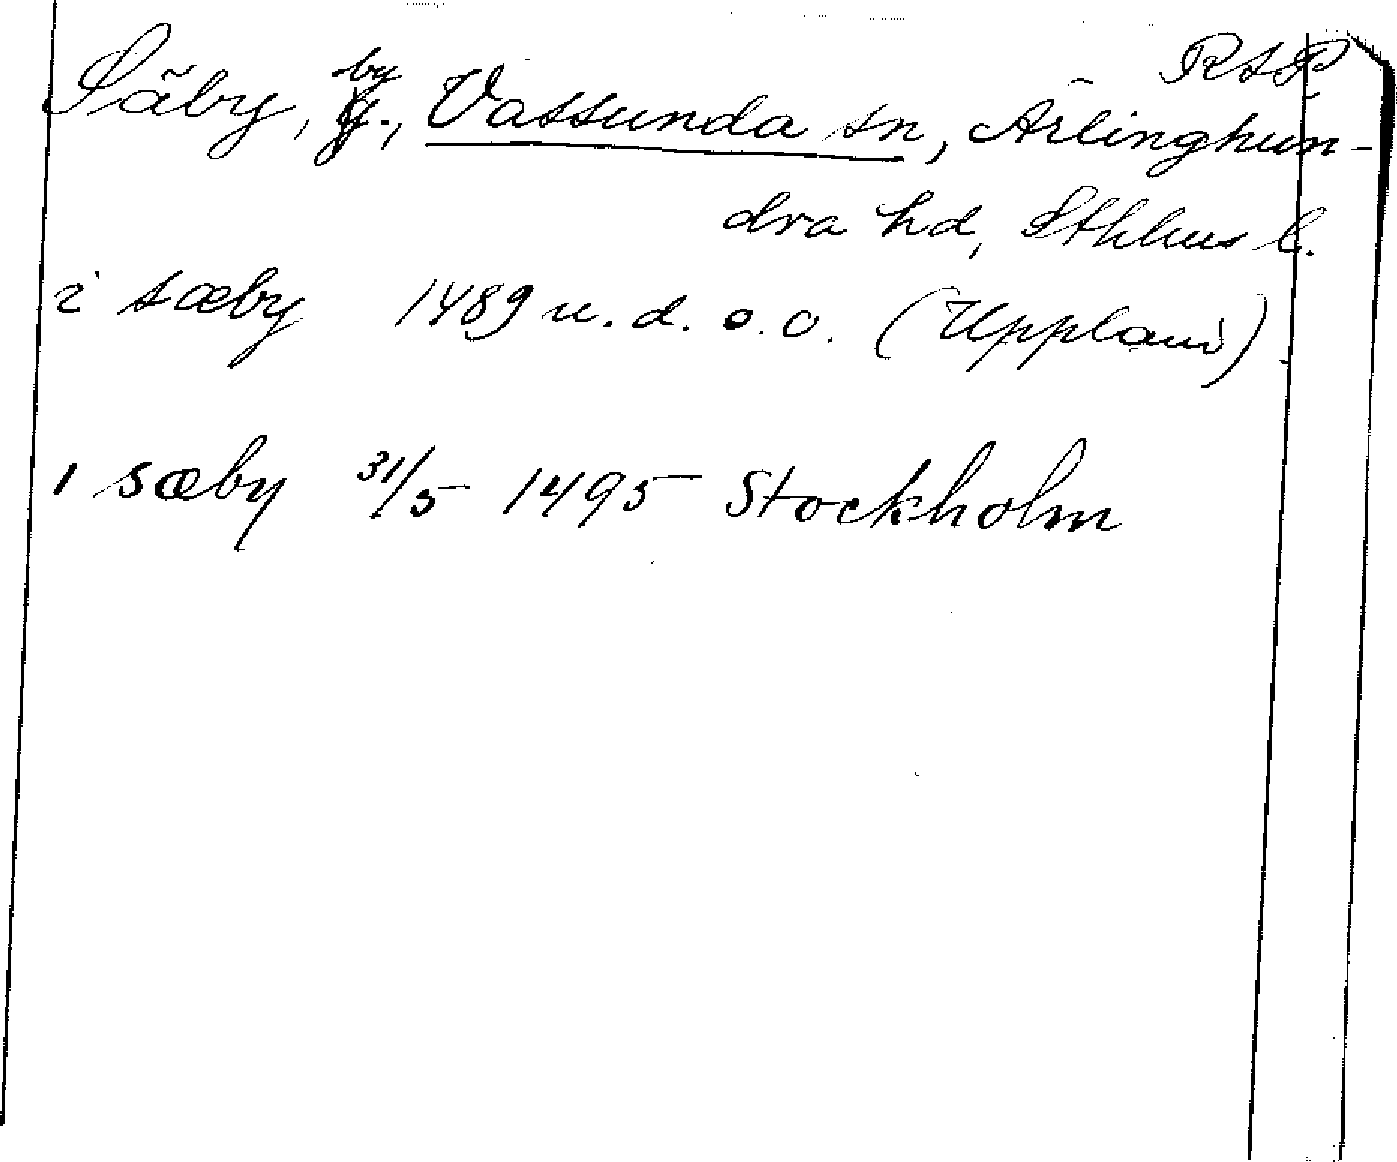 RAP
Säby, by, Vassunda sn, Ärlinghun-
dra hd, Sthlms l.
i sæby 1489 u. d. o. o. (Uppland)
i sæby 31/5 1495 Stockholm